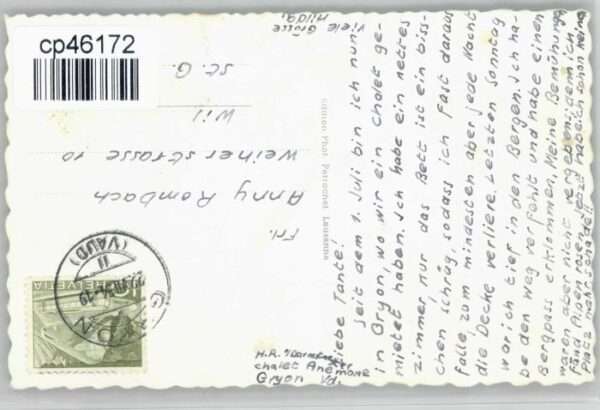 cp46172
Liebe Tante!
Seit dem 1. Juli bin ich nun
in Gryon, wo wir ein Chalet ge-
mietet haben. Ich habe ein nettes
Zimmer, nur das Bett ist ein biss-
chen schräg, sodass ich fast daraus
falle, zum mindesten aber jede Nacht
die Decke verliere. Letzten Sonntag
war ich tier in den Bergen. Ich ha-
be den Weg verfehlt und habe einen
Bergpass erklommen. Meine Bemühungen
waren aber nicht vergebens, denn ich
fand Alpenrosen. Jetzt habe ich schon keinen
Platz mehr. schade!
Viele Grüsse
Hilda,
H.R.
chalet Anémone
Gryon Vd.
Edition Phot. Perrochet, Lausanne
Frl.
Anny Rombach
Weiherstrasse 10
Wil
St. G.
HELVETIA
10
GRYON
(VAUD)